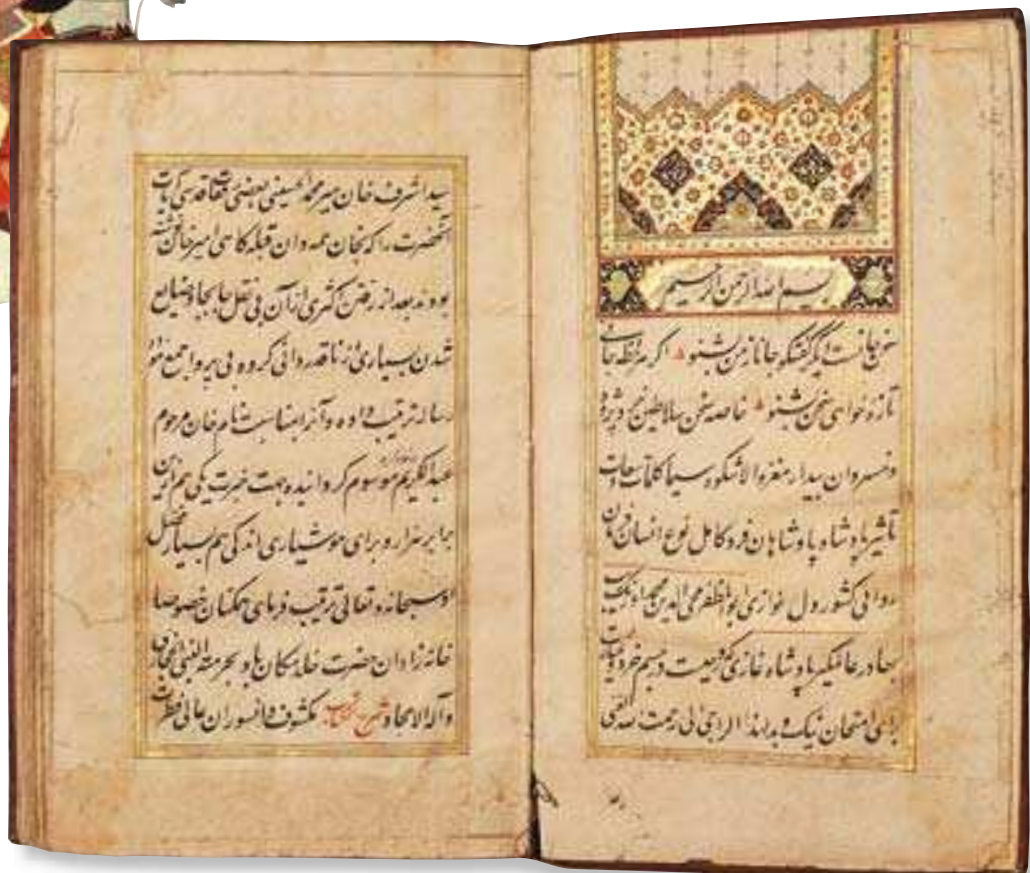 بسم الله الرحمن الرحیم
سخن جانست دیگر گفتگو جانا ز من بشنو اگر هر لحظه جانی
تازه خواهی سخن بشنو خاصه سخن سلاطین
و خسروان بیدار مغز والاشکوه سیما کلمات
تاثیر بادشاه بادشاهان فرد کامل نوع انسان
روائی کشور دل نوازی ابوالمظفر محی الدین محمد اورنگ زیب
بهادر عالمگیر بادشاه غازی که
برای امتحان نیک و بد اند الراجی الی رحمت الله الغنی
سید اشرف خان میر محمد الحسینی بعضی
آنحضرت را که بخان عمده وان قبله کاهی امیر خان
بودند بعد از رفتن اکثری از آن بی نقل بایجا و ضایع
شدن بسیاری از ناقدردانی گروه بی پروا جمع
رساله ترتیب داده و آنرا بمناسبت نام خان مرحوم
عبدالکریم موسوم گردانیده بهت خبرت یکی هم
برابر هزار و برای هوشیاری اندکی هم بسیار
او سبحانه و تعالی ترتیب فرمای همکنان خصوصا
خانه زادان حضرت خلد مکان باد بحرمته النبی
و آله الامجاد شرح مکشوف دانشوران عالی فطرت